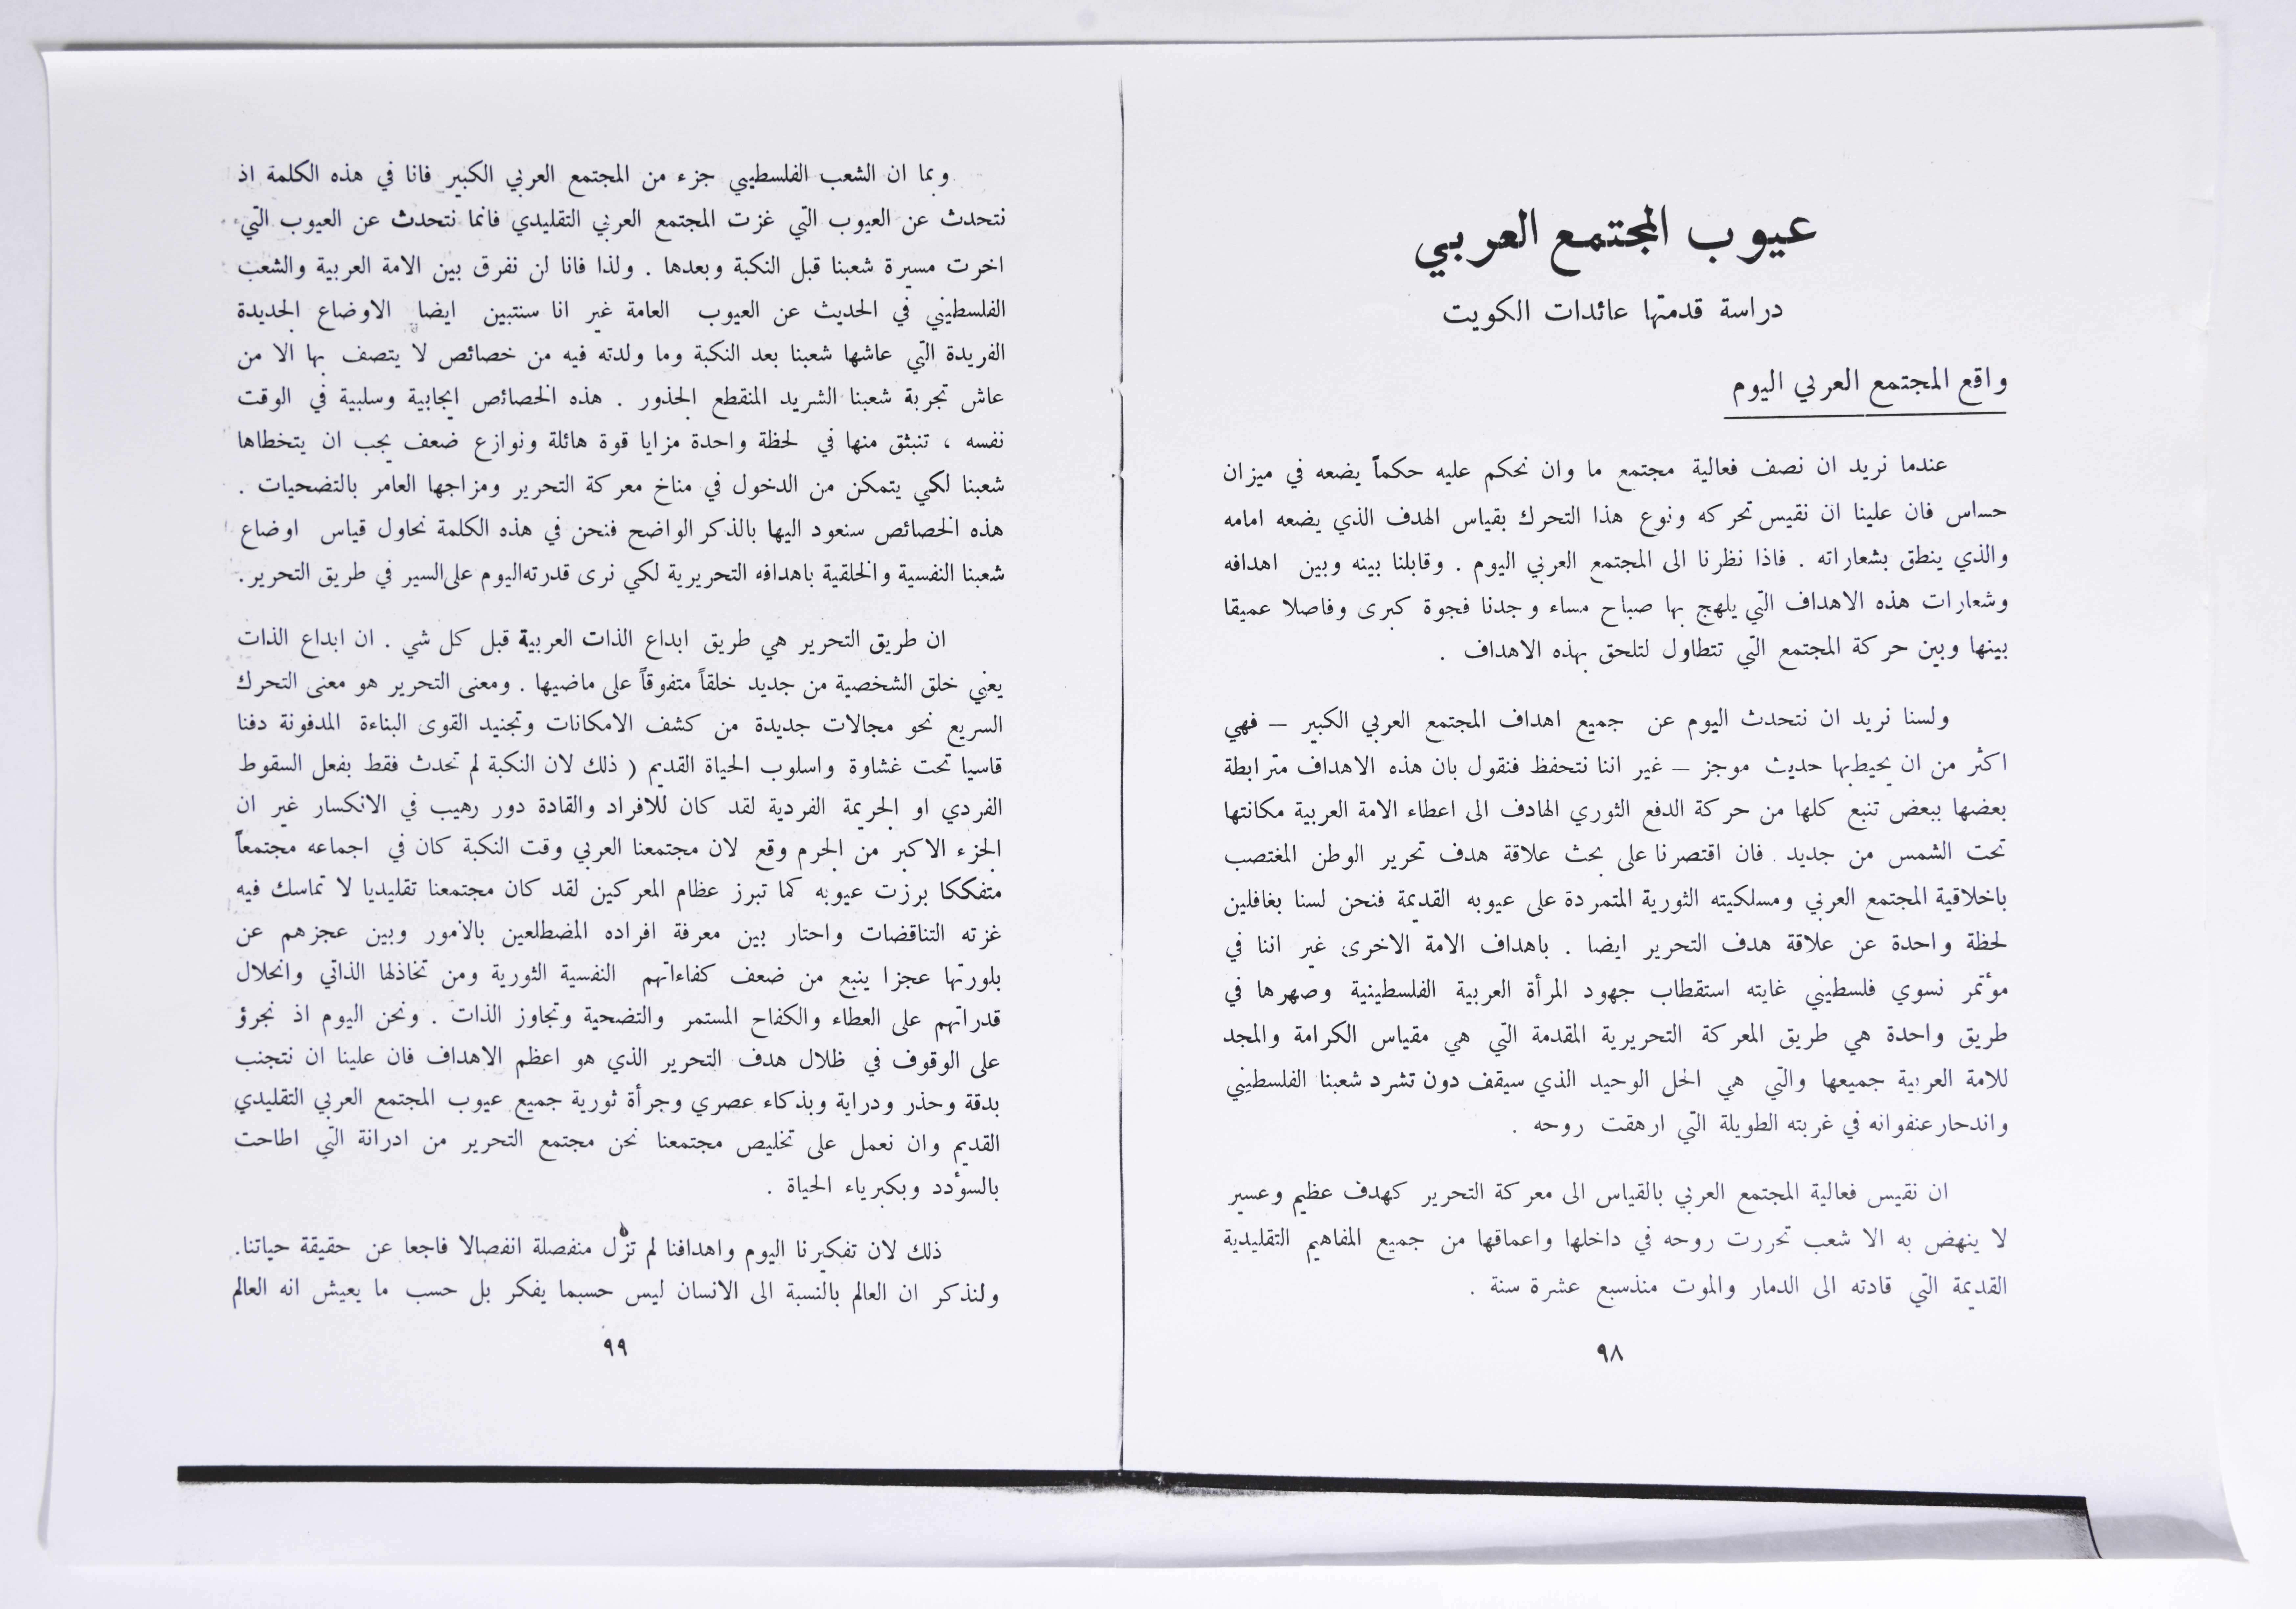 عيوب المجتمع العربي
دراسة قدمتها عائدات الكويت
واقع المجتمع العربي اليوم
عندما نريد ان نصف فعالية مجتمع ما وان نحكم عليه حكماً يضعه في ميزان
حساس فان علينا ان نقيس تحركه ونوع هذا التحرك بقياس الهدف الذي يضعه امامه
والذي ينطق بشعاراته . فاذا نظرنا الى المجتمع العربي اليوم . وقابلنا بينه وبين اهدافه
وشعارات هذه الاهداف التي يلهج بها صباح مساء وجدنا فجوة كبرى وفاصلا عميقا
بينها وبين حركة المجتمع التي تتطاول لتلحق بهذه الاهداف .
ولسنا نريد ان نتحدث اليوم عن جميع اهداف المجتمع العربي الكبير – فهي
اكثر من ان يحيط بها حديث موجز – غير اننا نتحفظ فنقول بان هذه الاهداف مترابطة
بعضها ببعض تنبع كلها من حركة الدفع الثوري الهادف الى اعطاء الامة العربية مكانتها
تحت الشمس من جديد . فان اقتصرنا على بحث علاقة هدف تحرير الوطن المغتصب
باخلاقية المجتمع العربي ومسلكيته الثورية المتمردة على عيوبه القديمة فنحن لسنا بغافلين
لحظة واحدة عن علاقة هدف التحرير ايضا . باهداف الامة الاخرى غير اننا في
مؤتمر نسوي فلسطيني غايته استقطاب جهود المرأة العربية الفلسطينية وصهرها في
طريق واحدة هي طريق المعركة التحريرية المقدمة التي هي مقياس الكرامة والمجد
للامة العربية جميعها والتي هي الحل الوحيد الذي سيقف دون تشرد شعبنا الفلسطيني
واندحار عنفوانه في غربته الطويلة التي ارهقت روحه .
ان نقيس فعالية المجتمع العربي بالقياس الى معركة التحرير كهدف عظيم وعسير
لا ينهض به الا شعب تحررت روحه في داخلها واعماقها من جميع المفاهيم التقليدية
القديمة التي قادته الى الدمار والموت منذسبع عشرة سنة .
٩٨
وبما ان الشعب الفلسطيني جزء من المجتمع العربي الكبير فانا في هذه الكلمة اذ
نتحدث عن العيوب التي غزت المجتمع العربي التقليدي فانما نتحدث عن العيوب التي
اخرت مسيرة شعبنا قبل النكبة وبعدها . ولذا فانا لن نفرق بين الامة العربية والشعب
الفلسطيني في الحديث عن العيوب العامة غير انا سنتبين ايضا الاوضاع الجديدة
الفريدة التي عاشها شعبنا بعد النكبة وما ولدته فيه من خصائص لا يتصف بها الا من
عاش تجربة شعبنا الشريد المنقطع الجذور . هذه الخصائص ايجابية وسلبية في الوقت
نفسه ، تنبثق منها في لحظة واحدة مزايا قوة هائلة ونوازع ضعف يجب ان يتخطاها
شعبنا لكي يتمكن من الدخول في مناخ معركة التحرير ومزاجها العامر بالتضحيات .
هذه الخصائص سنعود اليها بالذكر الواضح فنحن في هذه الكلمة نحاول قياس اوضاع
شعبنا النفسية والخلقية باهدافه التحريرية لكي نرى قدرته اليوم على السير في طريق التحرير.
ان طريق التحرير هي طريق ابداع الذات العربية قبل كل شي . ان ابداع الذات
يعني خلق الشخصية من جديد خلقاً متفوقاً على ماضيها . ومعنى التحرير هو معنى التحرك
السريع نحو مجالات جديدة من كشف الامكانات وتجنيد القوى البناءة المدفونة دفنا
قاسيا تحت غشاوة واسلوب الحياة القديم ( ذلك لان النكبة لم تحدث فقط بفعل السقوط
الفردي او الجريمة الفردية لقد كان للافراد والقادة دور رهيب في الانكسار غير ان
الجزء الاكبر من الجرم وقع لان مجتمعنا العربي وقت النكبة كان في اجماعه مجتمعاً
متفككا برزت عيوبه كما تبرز عظام المعركين لقد كان مجتمعنا تقليديا لا تماسك فيه
غزته التناقضات واحتار بين معرفة افراده المضطلعين بالامور وبين عجزهم عن
بلورتها عجزا ينبع من ضعف كفاءاتهم النفسية الثورية ومن تخاذلها الذاتي وانحلال
قدراتهم على العطاء والكفاح المستمر والتضحية وتجاوز الذات . ونحن اليوم اذ نجرؤ
على الوقوف في ظلال هدف التحرير الذي هو اعظم الاهداف فان علينا ان نتجنب
بدقة وحذر ودراية وبذكاء عصري وجرأة ثورية جميع عيوب المجتمع العربي التقليدي
القديم وان نعمل على تخليص مجتمعنا نحن مجتمع التحرير من ادرانة التي اطاحت
بالسؤدد وبكبرياء الحياة .
ذلك لان تفكيرنا اليوم واهدافنا لم تزل منفصلة انفصالا فاجعا عن حقيقة حياتنا.
ولنذكر ان العالم بالنسبة الى الانسان ليس حسبما يفكر بل حسب ما يعيش انه العالم
٩٩